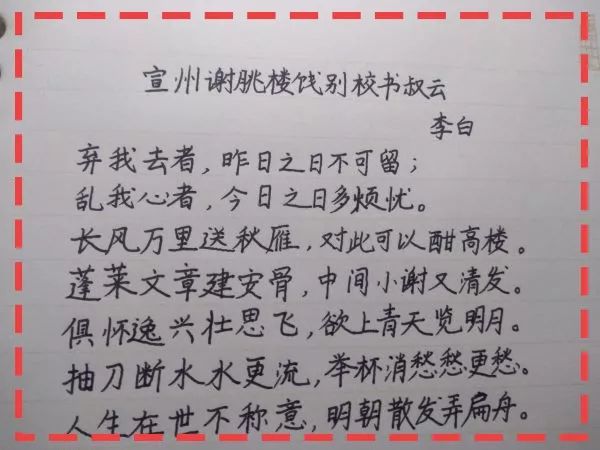 宣州谢朓楼饯别校书叔云
李白
弃我去者，昨日之日不可留；
乱我心者，今日之日多烦忧。
长风万里送秋雁，对此可以酣高楼。
蓬莱文章建安骨，中间小谢又清发。
俱怀逸兴壮思飞，欲上青天览明月。
抽刀断水水更流，举杯消愁愁更愁。
人生在世不称意，明朝散发弄扁舟。